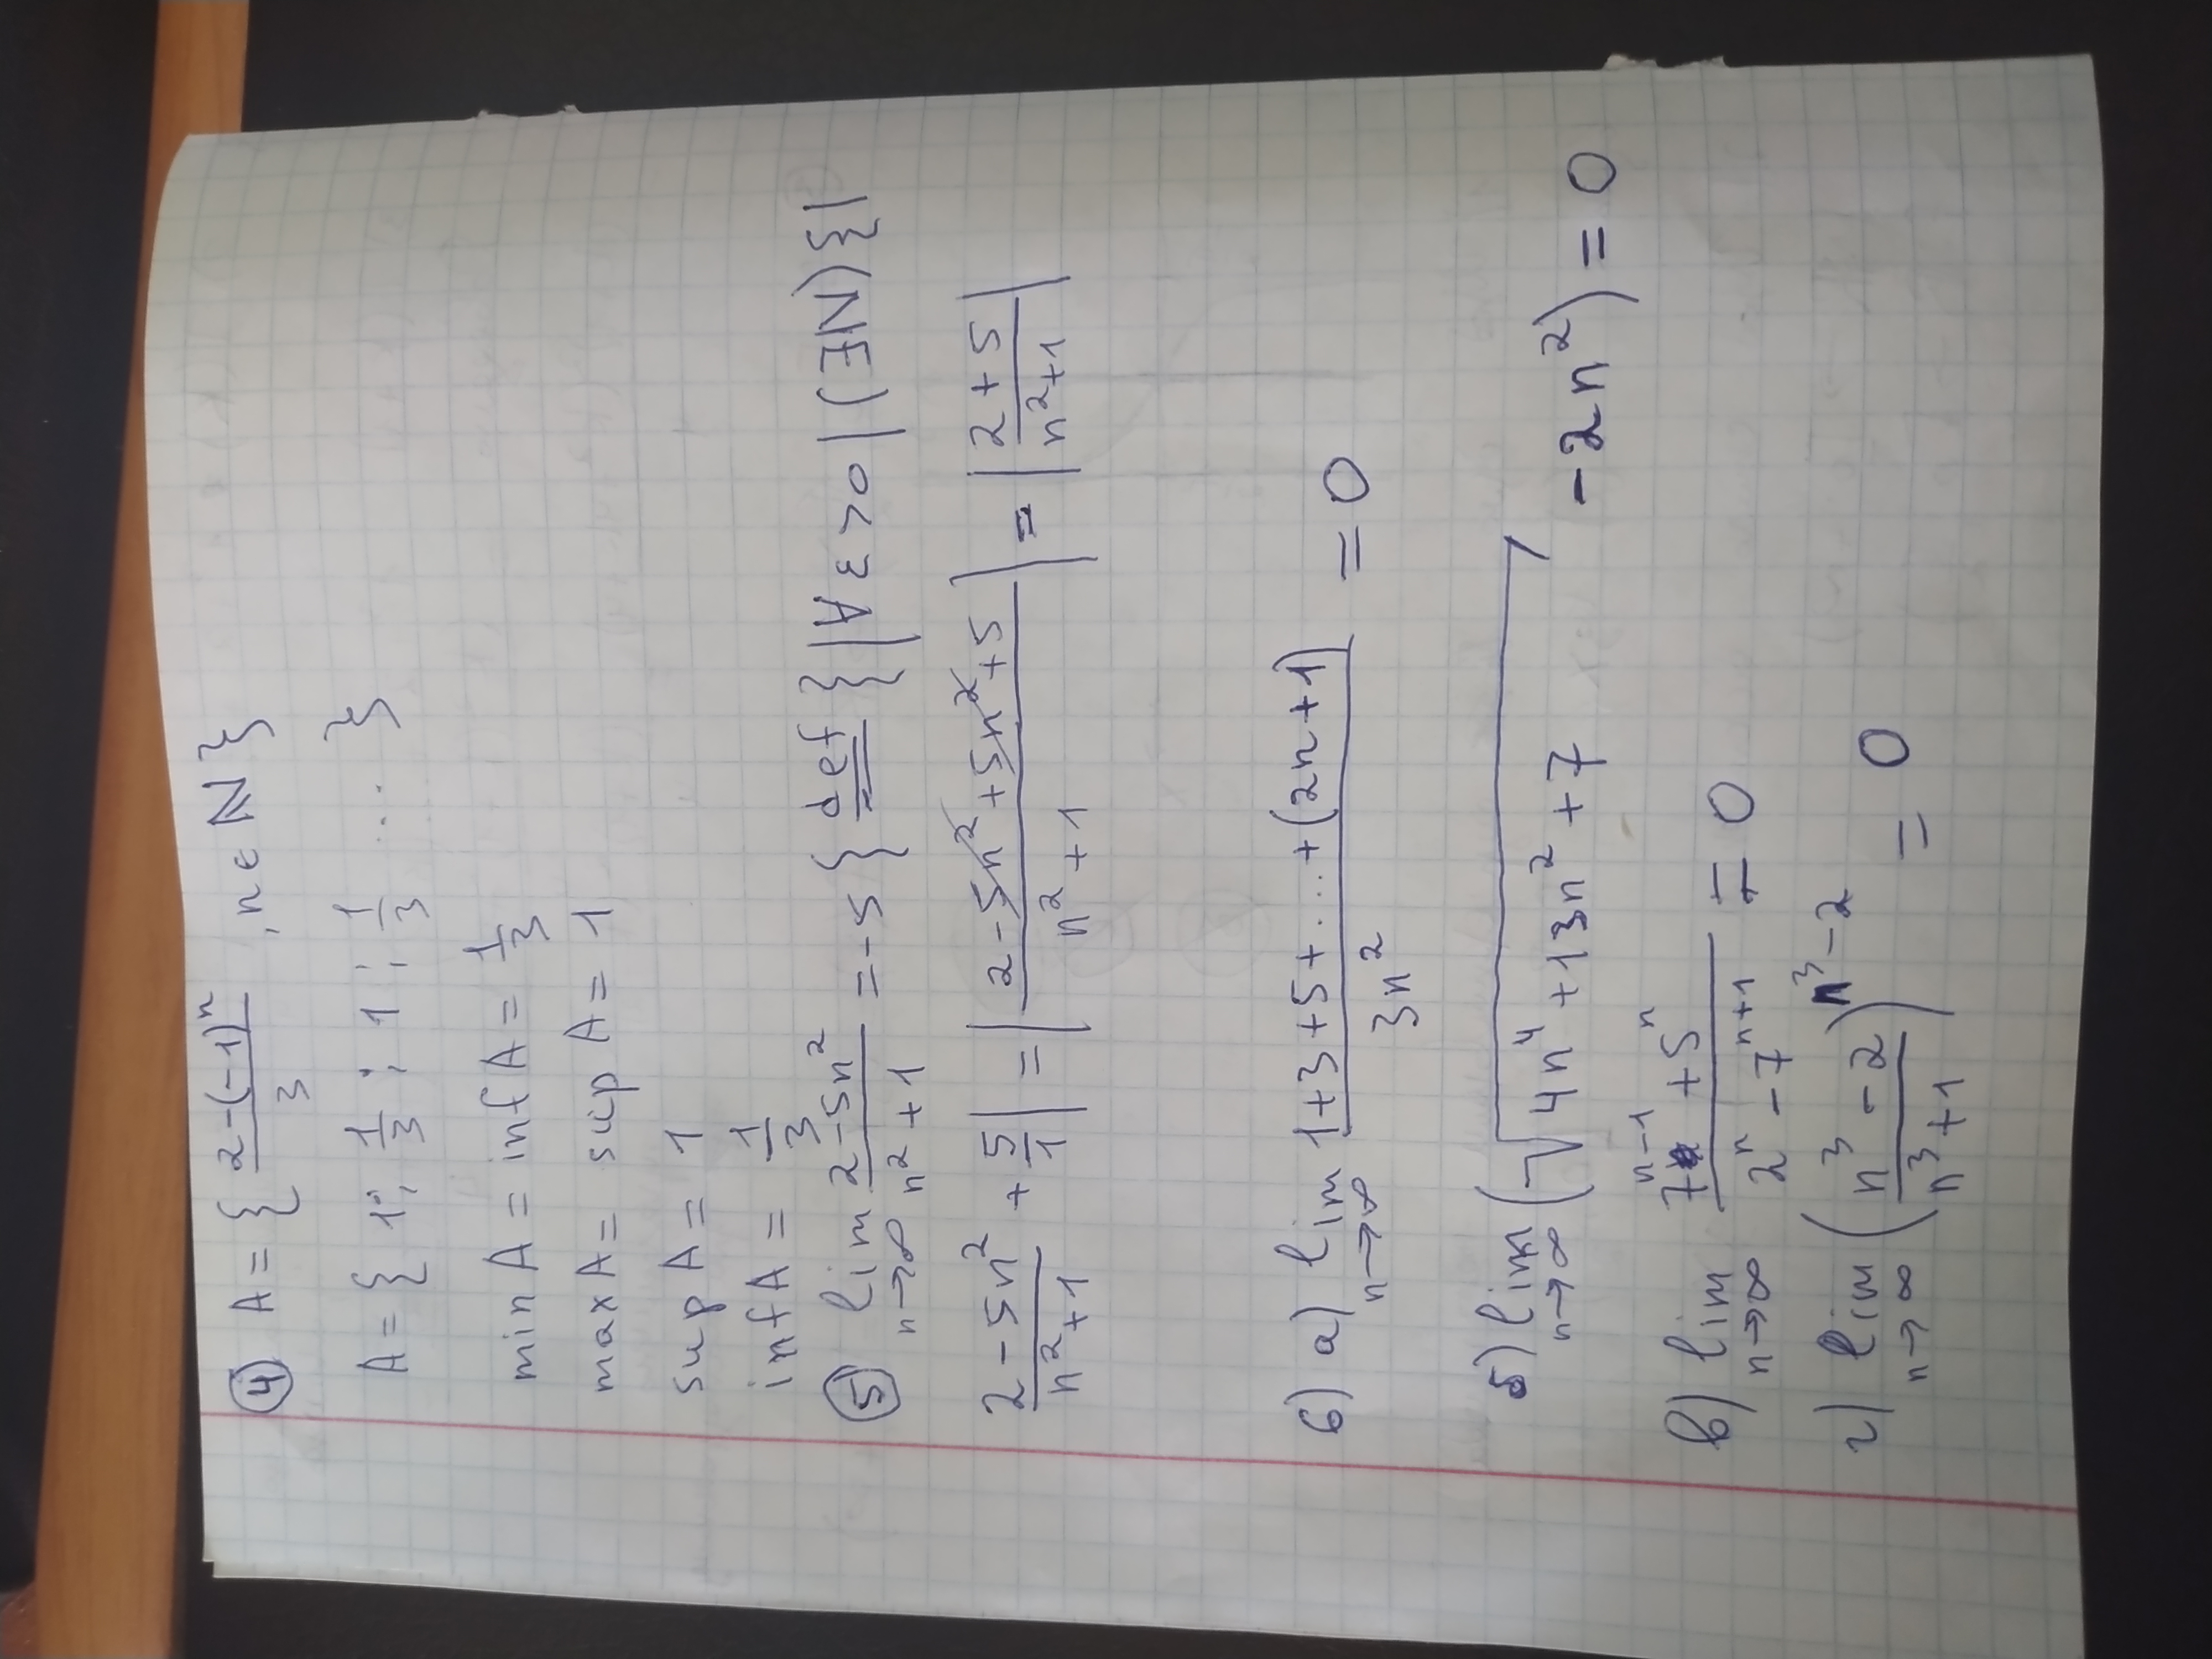 ④ A = { (2-(-1)ⁿ)/3 , n ∈ ℕ }
A = { 1; 1/3 ; 1 ; 1/3 ... }
min A = inf A = 1/3
max A = sup A = 1
sup A = 1
inf A = 1/3
⑤ lim n→∞ (2-5n²)/(n²+1) = -5 { def } | ∀ ε > 0 | (∃N) { |
(2-5n²)/(n²+1) + 5/1 | = | (2-5n²+5n²+5)/(n²+1) | = | (2+5)/(n²+1) |
6) a) lim n→∞ (1+3+5+...+(2n+1))/(3n²) = 0
б) lim n→∞ (√(4n⁴+13n²+7) -2n²) = 0
в) lim n→∞ (7ⁿ⁻¹+5ⁿ)/(2ⁿ-7ⁿ⁺¹) = 0
г) lim n→∞ ((n³-2)/(n³+1))^(n³-2) = 0